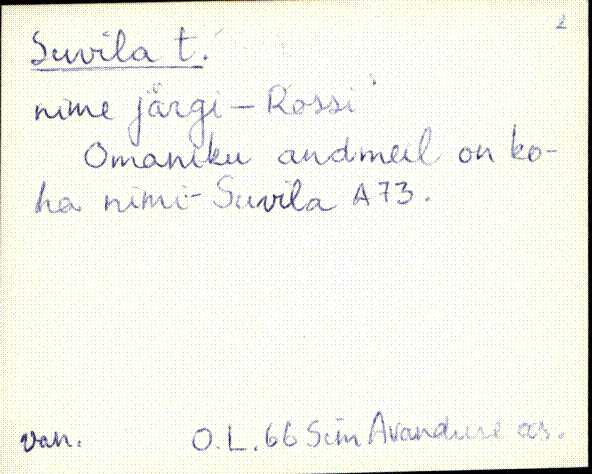 2
Suvila t.
nime järgi – Rossi
Omaniku andmeil on ko-
ha nimi - Suvila A 73.
van. O.L. 66 Sim Avanduse as.